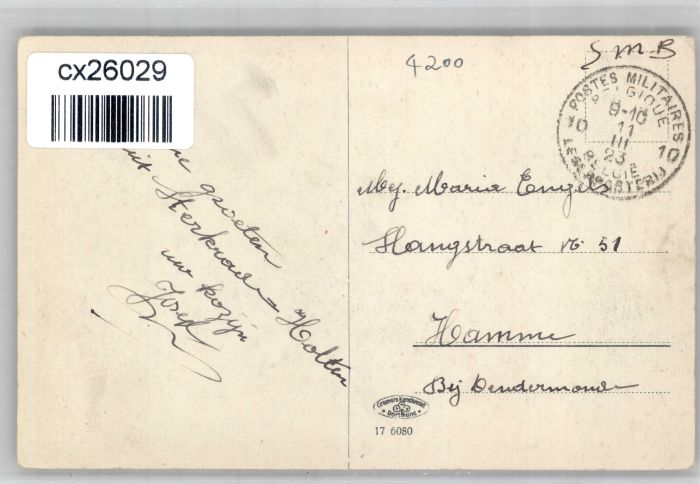 cx26029
4200
SMB
POSTES MILITAIRES
BELGIQUE
9-10
11
III
23
10
BELGIË
LEGERPOSTERIJ
groeten
uit Sterkrade = Holten
uw kozijn
Jozef
Mej. Maria Engels
Hangstraat № 51
Hamme
Bij Dendermonde
Cramers Kunstanstalt
Dortmund
17 6080